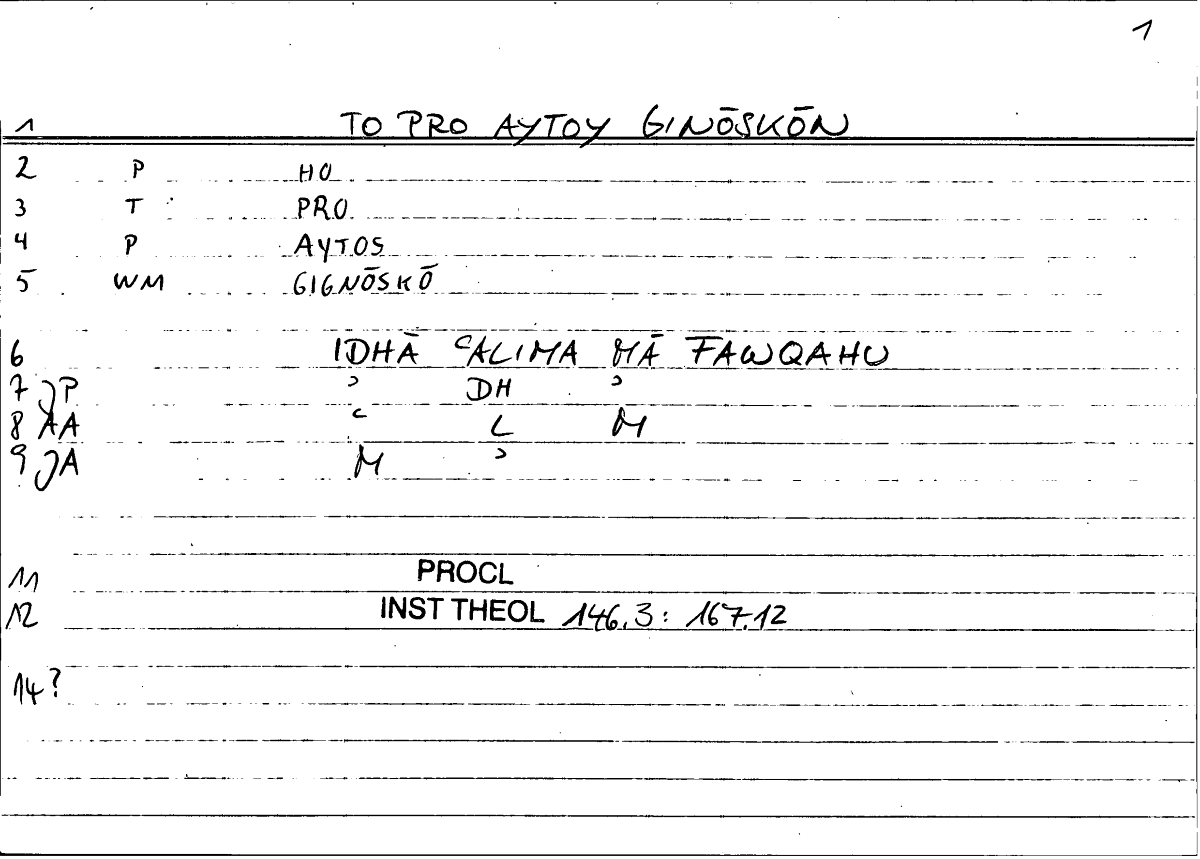 1
1 TO PRO AYTOY GINŌSKŌN
2 P HO
3 T PRO
4 P AYTOS
5 WM GIGNŌSKŌ
6 IDHĀ ʿALIMA MĀ FAWQAHU
7 JP ʾ DH ʾ
8 AA ʿ L M
9 JA M ʾ
11 PROCL
12 INST THEOL 146.3: 167.12
14?